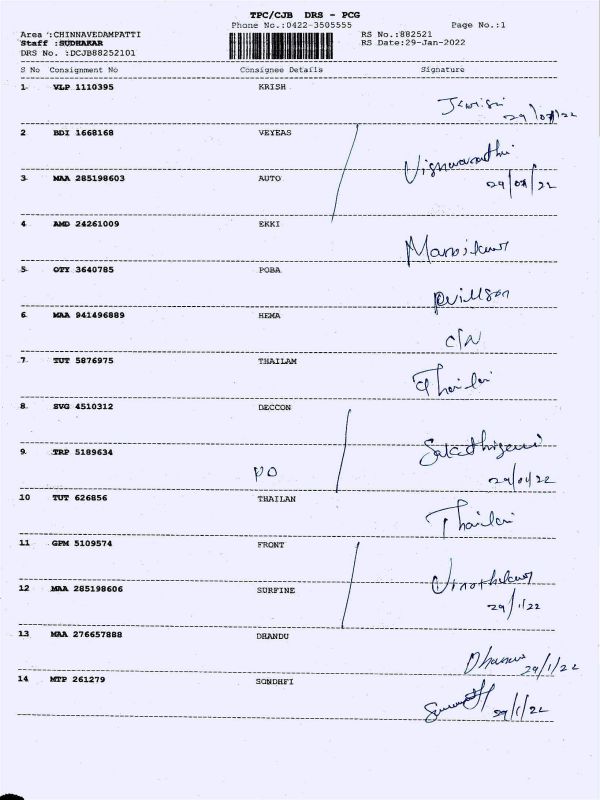 TPC/CJB DRS - PCG
Phone No.:0422-3505555 Page No.:1
Area :CHINNAVEDAMPATTI RS No.:882521
Staff :SUDHAKAR RS Date:29-Jan-2022
DRS No. :DCJB88252101
S No Consignment No Consignee Details Signature
1 VLP 1110395 KRISH
2 BDI 1668168 VEYEAS
3 MAA 285198603 AUTO
4 AMD 24261009 EKKI
5 OTY 3640785 POBA
6 MAA 941496889 HEMA
7 TUT 5876975 THAILAM
Thailai
8 SVG 4510312 DECCON
9 TRP 5189634
29/01/22
10 TUT 626856 THAILAN
Thailai
11 GPM 5109574 FRONT
12 MAA 285198606 SURFINE
29/1/22
13 MAA 276657888 DHANDU
29/1/22
14 MTP 261279 SONDHFI
29/1/22